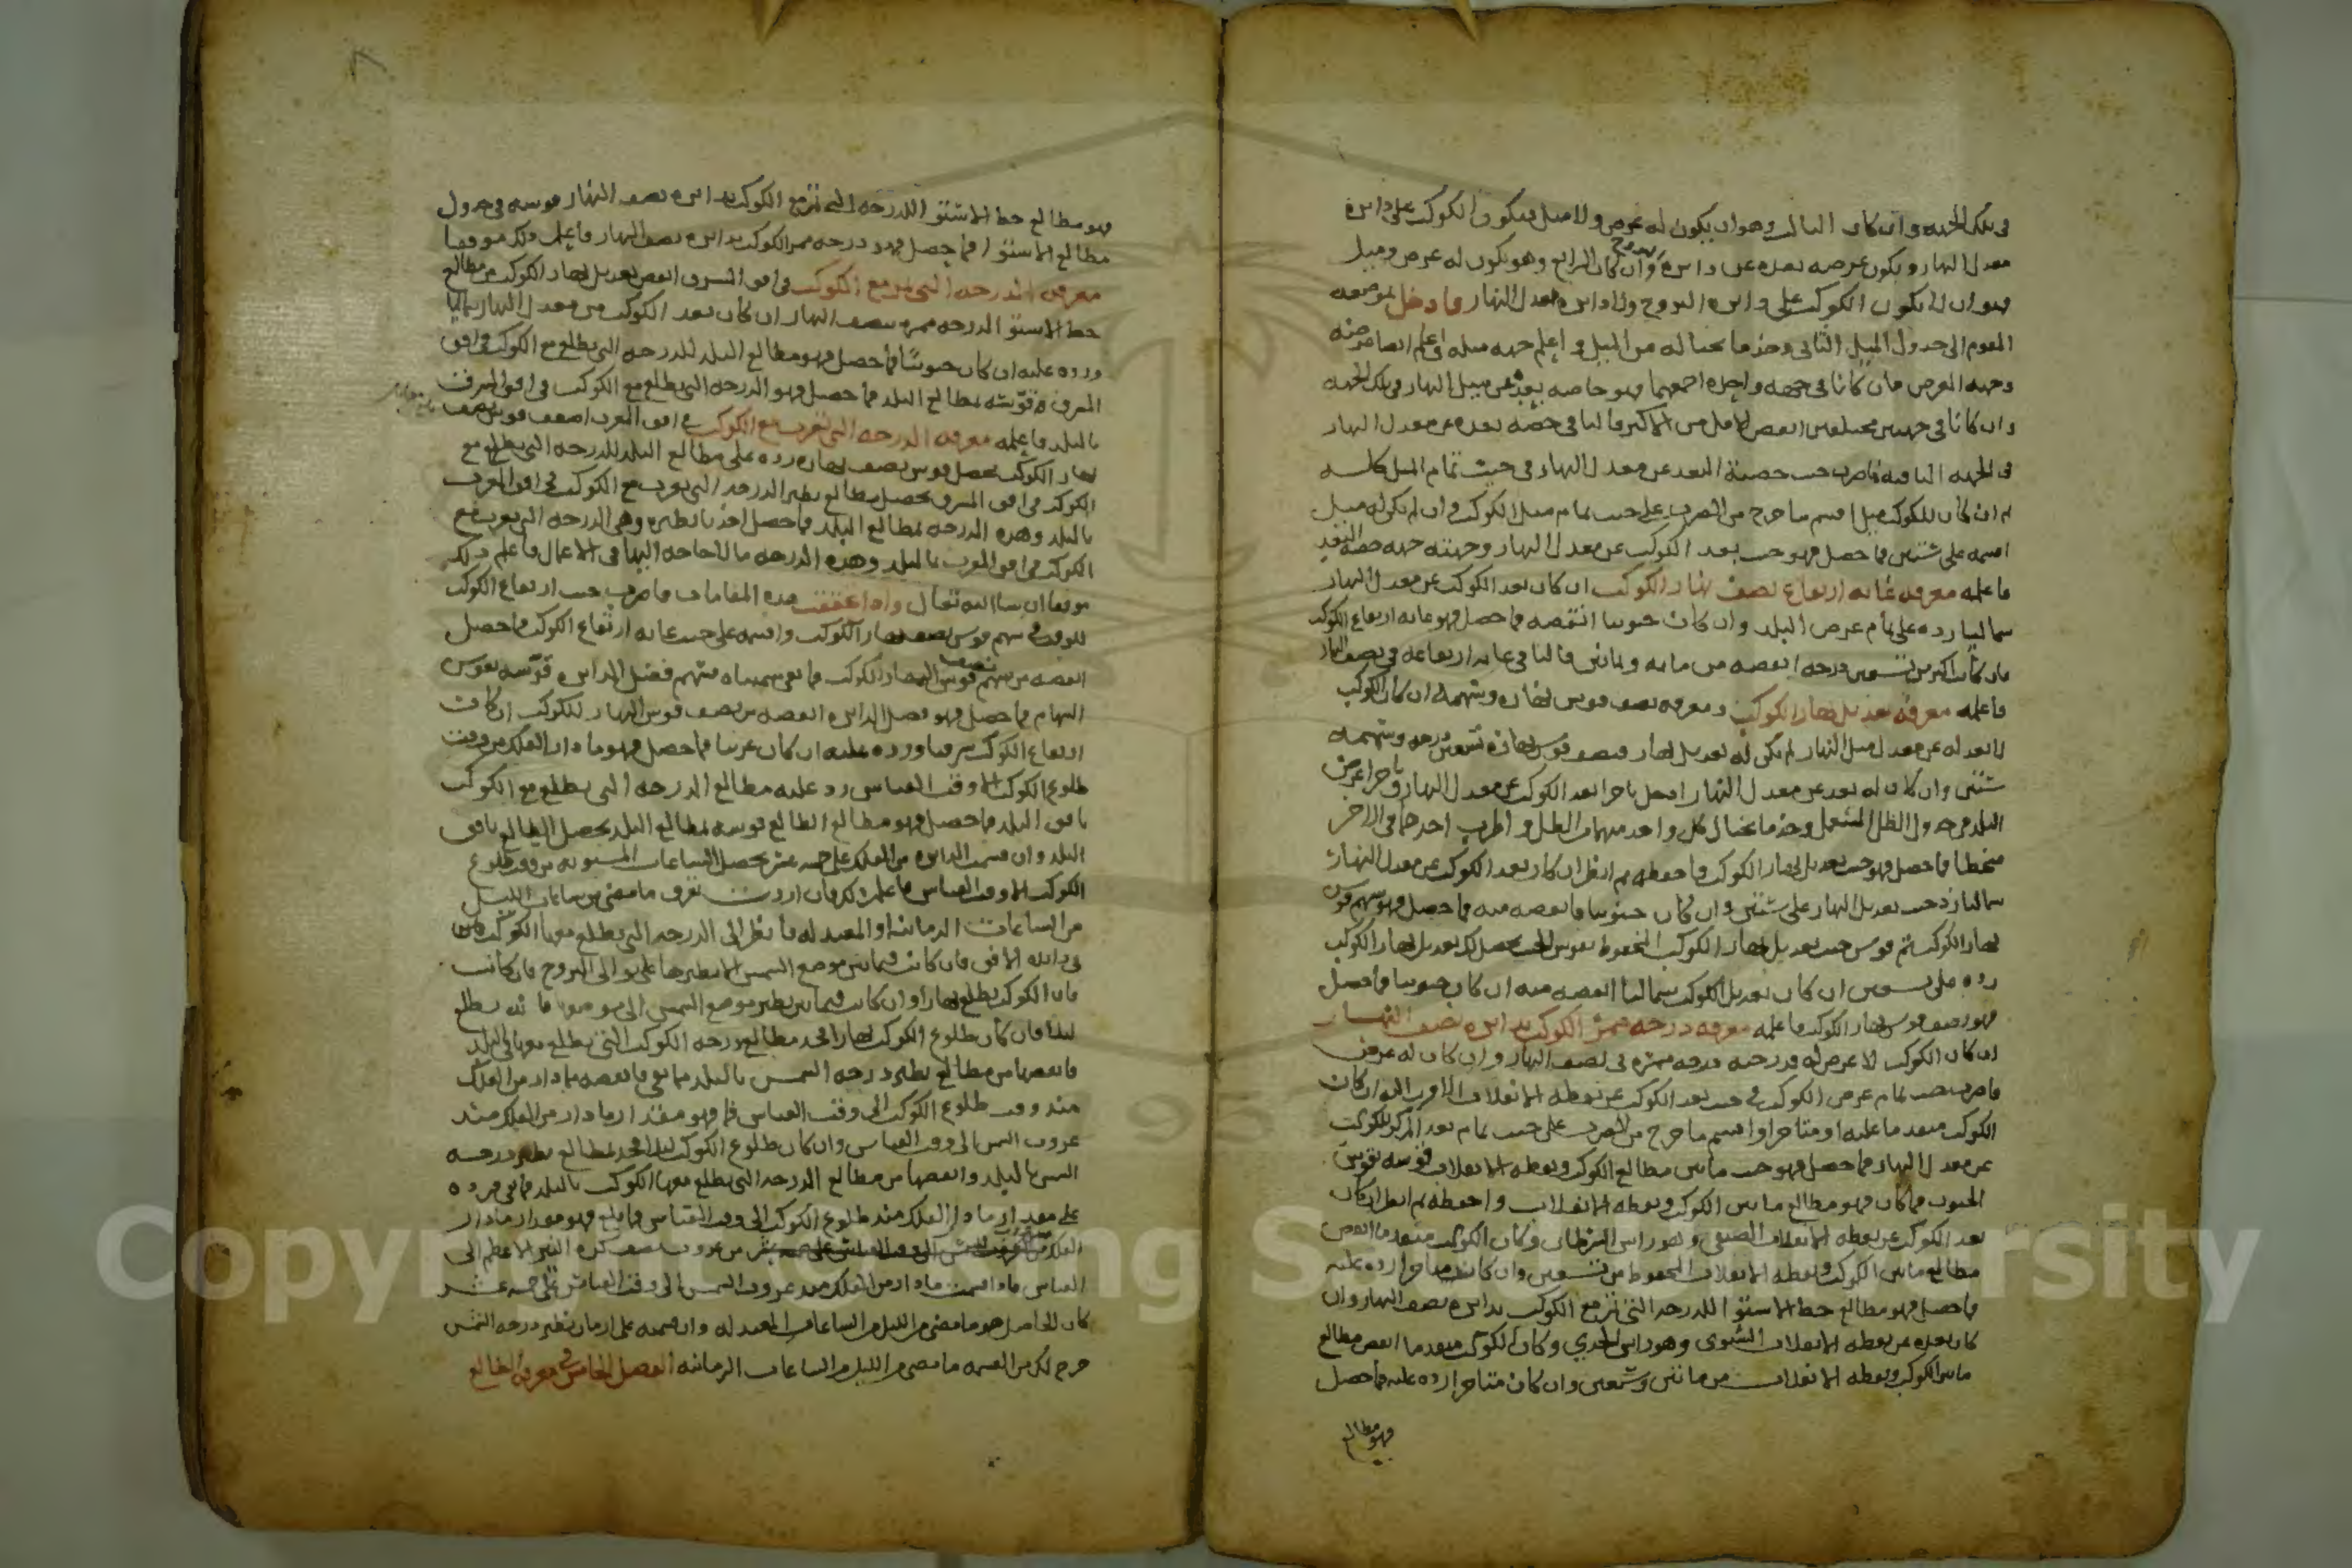 في تلك الجهة وان كان الثالث وهو ان يكون له عرض ولا ميل فيكون الكوكب على دايرة
معدل النهار ويكون عرضه بعده عن دايرة البروج وان كان الرابع وهو يكون له عرض وميل
فهو ان لا يكون الكوكب على دايرة البروج ولا دايرة معدل النهار فادخل بموضعه
المقوم الى جدول الميل الثاني وخذ ما بحياله من الميل واعلم جهة ميله واعلم ايضا عرضه
وجهة العرض فان كانا في جهة واحدة اجمعهما فهو حاصة بعده عن ميل النهار في تلك الجهة
وان كانا في جهتين مختلفتين انقص الاقل من الاكثر فالباقي حصة بعده عن معدل النهار
في الجهة الباقية فاضرب جيب حصة البعد عن معدل النهار في جيب تمام الميل كله
ثم ان كان للكوكب ميل اقسم ما خرج من الضرب على جيب تمام ميل الكوكب وان لم يكن له ميل
اقسمه على ستين فما حصل فهو جيب بعد الكوكب عن معدل النهار وجهته جهة حصة البعد
فاعلمه معرفة غاية ارتفاع نصف نهار الكوكب ان كان بعد الكوكب عن معدل النهار
شماليا زده على تمام عرض البلد وان كان جنوبيا انقصه فما حصل فهو غاية ارتفاع الكوكب
فان كان اكثر من تسعين درجة انقصه من مايه وثمانين فالباقي غاية ارتفاعه في نصف النهار
فاعلمه معرفة تعديل نهار الكوكب ومعرفة نصف قوس نهاره وسهمه ان كان الكوكب
لا بعد له عن معدل النهار لم يكن له تعديل نهار ونصف قوس نهاره تسعين درجة وسهمه
ستين وان كان له بعد عن معدل النهار ادخل باجزا بعد الكوكب عن معدل النهار وباجزا عرض
البلد في جدول الظل المستعمل وخذ ما بحيال كل واحد منهما من الظل واضرب احدهما في الاخر
منحطا فما حصل فهو جيب تعديل نهار الكوكب فاحفظه ثم انظر ان كان بعد الكوكب عن معدل النهار
شماليا زد جيب تعديل النهار على ستين وان كان جنوبيا فانقصه منه فما حصل فهو سهم قوس
نهار الكوكب ثم قوس جيب تعديل نهار الكوكب المحفوظ بقوس الجيب يحصل لك تعديل نهار الكوكب
زده على تسعين ان كان تعديل الكوكب شماليا انقصه منه ان كان جنوبيا فما حصل
فهو نصف قوس نهار الكوكب فاعلمه معرفة درجة ممر الكوكب بدايرة نصف النهار
ان كان الكوكب لا عرض له فدرجته درجة ممره في نصف النهار وان كان له عرض
فاضرب جيب تمام عرض الكوكب في جيب بعد الكوكب عن نقطة الانقلاب الاقرب اليه ان كان
الكوكب متقدما عليه او متاخرا واقسم ما خرج من الضرب على جيب تمام بعد الكوكب
عن معدل النهار فما حصل فهو جيب ما بين مطالع الكوكب ونقطة الانقلاب قوسه بقوس
الجيوب فما كان فهو مطالع ما بين الكوكب ونقطة الانقلاب واحفظه ثم انظر ان كان
بعد الكوكب عن نقطة الانقلاب الصيفي وهو راس السرطان وكان الكوكب متقدما انقص
مطالع ما بين الكوكب ونقطة الانقلاب المحفوظ من تسعين وان كان متاخرا زده عليه
فما حصل فهو مطالع خط الاستوا للدرجة التي تمر مع الكوكب بدايرة نصف النهار وان
كان بعده عن نقطة الانقلاب الشتوي وهو راس الجدي وكان الكوكب متقدما انقص مطالع
ما بين الكوكب ونقطة الانقلاب من مائتين وسبعين وان كان متاخرا زده عليه فما حصل
فهو مطالع
فهو مطالع خط الاستوا للدرجة التي تمر مع الكوكب بدايرة نصف النهار قوسه في جدول
مطالع الاستوا فما حصل فهو درجة ممر الكوكب بدايرة نصف النهار فاعلم ذلك موفقا
معرفة الدرجة التي تطلع مع الكوكب في افق المشرق انقص تعديل نهار الكوكب من مطالع
خط الاستوا لدرجة ممره بنصف النهار ان كان بعد الكوكب من معدل النهار شماليا
وزده عليه ان كان جنوبيا فما حصل فهو مطالع البلد للدرجة التي تطلع مع الكوكب في افق
المشرق فقوسه بمطالع البلد فما حصل فهو الدرجة التي تطلع مع الكوكب في افق المشرق
بالبلد فاعلمه معرفة الدرجة التي تغرب مع الكوكب في افق المغرب اضعف قوس نصف
نهار الكوكب يحصل قوس نهاره زده على مطالع البلد للدرجة التي تطلع مع
الكوكب في افق المشرق يحصل مطالع نظير الدرجة التي تغرب مع الكوكب في افق المغرب
بالبلد وهذه الدرجة بمطالع البلد فما حصل اخذنا نظيره وهي الدرجة التي تغرب مع
الكوكب في افق المغرب بالبلد وهذه الدرجة ما لا حاجة اليها في الاعمال فاعلم ذلك
موفقا ان شا الله تعالى واذا حققت هذه المقامات فاضرب جيب ارتفاع الكوكب
للوقت في سهم قوس نصف نهار الكوكب واقسمه على جيب غاية ارتفاع الكوكب فما حصل
انقصه من سهم نصف قوس النهار الكوكب فما بقي سميناه سهم فضل الداير قوسه بقوس
السهام فما حصل فهو فضل الداير انقصه من نصف قوس النهار للكوكب ان كانت
ارتفاع الكوكب شرقيا وزده عليه ان كان غربيا فما حصل فهو ما دار الفلك من وقت
طلوع الكوكب الى وقت القياس زد عليه مطالع الدرجة التي تطلع مع الكوكب
بافق البلد فما حصل فهو مطالع الطالع قوسه بمطالع البلد يحصل الطالع بافق
البلد وان قسمت الداير من الفلك على خمسة عشر يحصل الساعات المستوية من وقت طلوع
الكوكب الى وقت القياس فاعلم ذلك فان اردت تعرف ما مضى من ساعات الليل
من الساعات الزمانية او المعتدلة فانظر الى الدرجة التي يطلع معها الكوكب
في دايرة الافق فان كانت فيما بين موضع الشمس الى نظيرها على توالي البروج فان كانت
فان الكوكب يطلع نهارا وان كانت فيما بين نظير موضع الشمس الى موضعها فانه يطلع
ليلا فان كان طلوع الكوكب نهارا فخذ مطالع درجة الكوكب التي يطلع معها في البلد
فانقصها من مطالع نظير درجة الشمس بالبلد فما بقي فانقصه مما دار من الفلك
منذ وقت طلوع الكوكب الى وقت القياس فما فهو مقدار ما دار من الفلك منذ
غروب الشمس الى وقت القياس وان كان طلوع الكوكب ليلا فخذ مطالع نظير درجة
الشمس بالبلد وانقصها من مطالع الدرجة التي يطلع معها الكوكب بالبلد فما بقي فزده
على مقدار ما دار الفلك منذ طلوع الكوكب الى وقت القياس فما بلغ فهو مقدار ما دار
الفلك من غروب نصف كرة النير الاعظم الى
القياس فاذا قسمت ما دار من الفلك منذ غروب الشمس الى وقت القياس على خمسة عشر
كان الحاصل هو ما مضى من الليل من الساعات المعتدلة وان قسمته على ازمان نظير درجة الشمس
خرج لك من القسمة ما مضى من الليل من الساعات الزمانية الفصل الخامس في معرفة الطالع
Copyright King Saud University